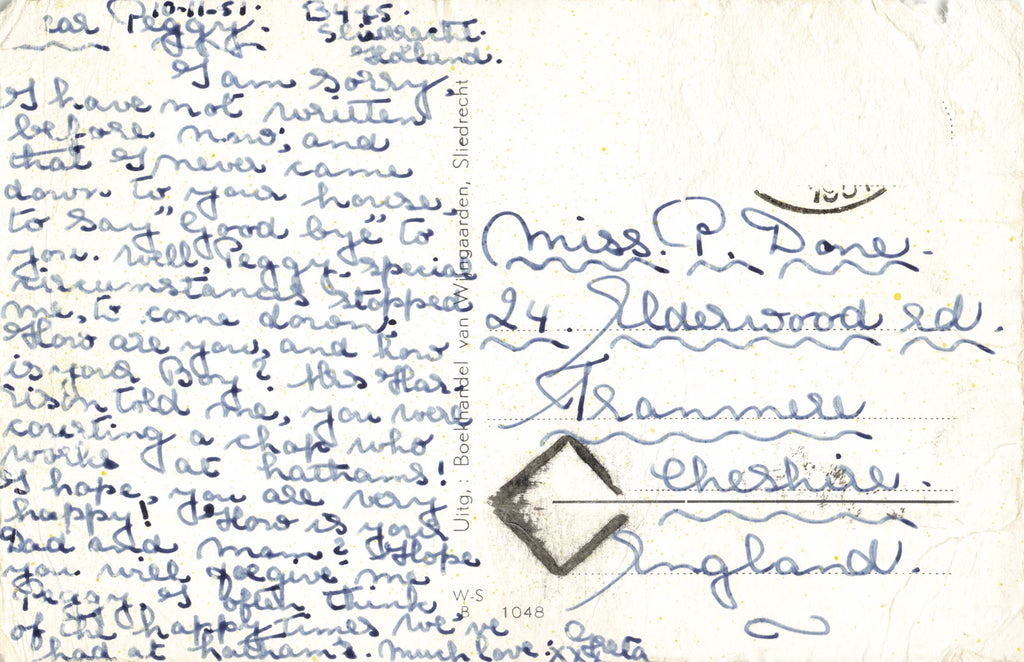 10-11-51. B475.
ear Peggy. Sliedrecht.
Holland.
I am sorry,
I have not written
before now, and
that I never came
down to your house,
to say "Good bye" to
you. Well, Peggy, special
circumstances stopped
me, to come down.
How are you, and how
is your Boy? Mrs Har-
rison told me, you were
courting a chap who
works at hathams!
I hope, you are very
happy! How is your
Dad and Mam? Hope
you will forgive me
Peggy, I often think
of the happy times we've
had at hatham's. Much love: Greta
xxx
Uitg.: Boekhandel van Wijngaarden, Sliedrecht
W-S
B 1048
1951
Miss. P. Done.
24. Elderwood rd.
Tranmere
Cheshire.
England.